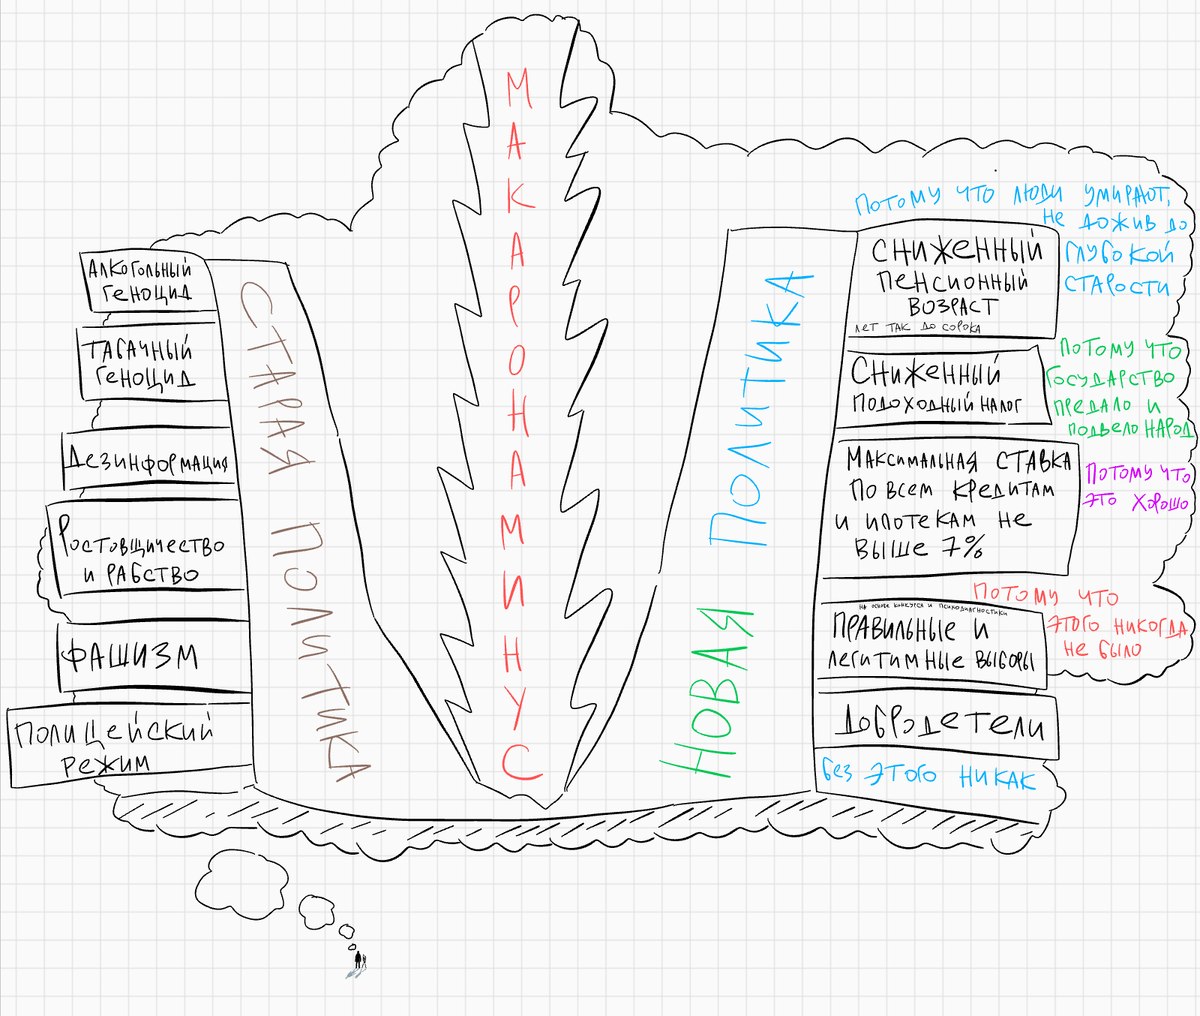 АЛКОГОЛЬНЫЙ
ГЕНОЦИД
ТАБАЧНЫЙ
ГЕНОЦИД
ДЕЗИНФОРМАЦИЯ
РОСТОВЩИЧЕСТВО
И РАБСТВО
ФАШИЗМ
ПОЛИЦЕЙСКИЙ
РЕЖИМ
СТАРАЯ ПОЛИТИКА
МАКАРОНАМИНУС
НОВАЯ ПОЛИТИКА
ПОТОМУ ЧТО ЛЮДИ УМИРАЮТ,
НЕ ДОЖИВ ДО
ГЛУБОКОЙ
СТАРОСТИ
СНИЖЕННЫЙ
ПЕНСИОННЫЙ
ВОЗРАСТ
ЛЕТ ТАК ДО СОРОКА
ПОТОМУ ЧТО
ГОСУДАРСТВО
ПРЕДАЛО И
ПОДВЕЛО НАРОД
СНИЖЕННЫЙ
ПОДОХОДНЫЙ НАЛОГ
МАКСИМАЛЬНАЯ СТАВКА
ПО ВСЕМ КРЕДИТАМ
И ИПОТЕКАМ НЕ
ВЫШЕ 7%
ПОТОМУ ЧТО
ЭТО ХОРОШО
ПОТОМУ ЧТО
ЭТОГО НИКОГДА
НЕ БЫЛО
НА ОСНОВЕ КОНКУРСА И ПСИХОДИАГНОСТИКИ
ПРАВИЛЬНЫЕ И
ЛЕГИТИМНЫЕ ВЫБОРЫ
ДОБРОДЕТЕЛИ
БЕЗ ЭТОГО НИКАК